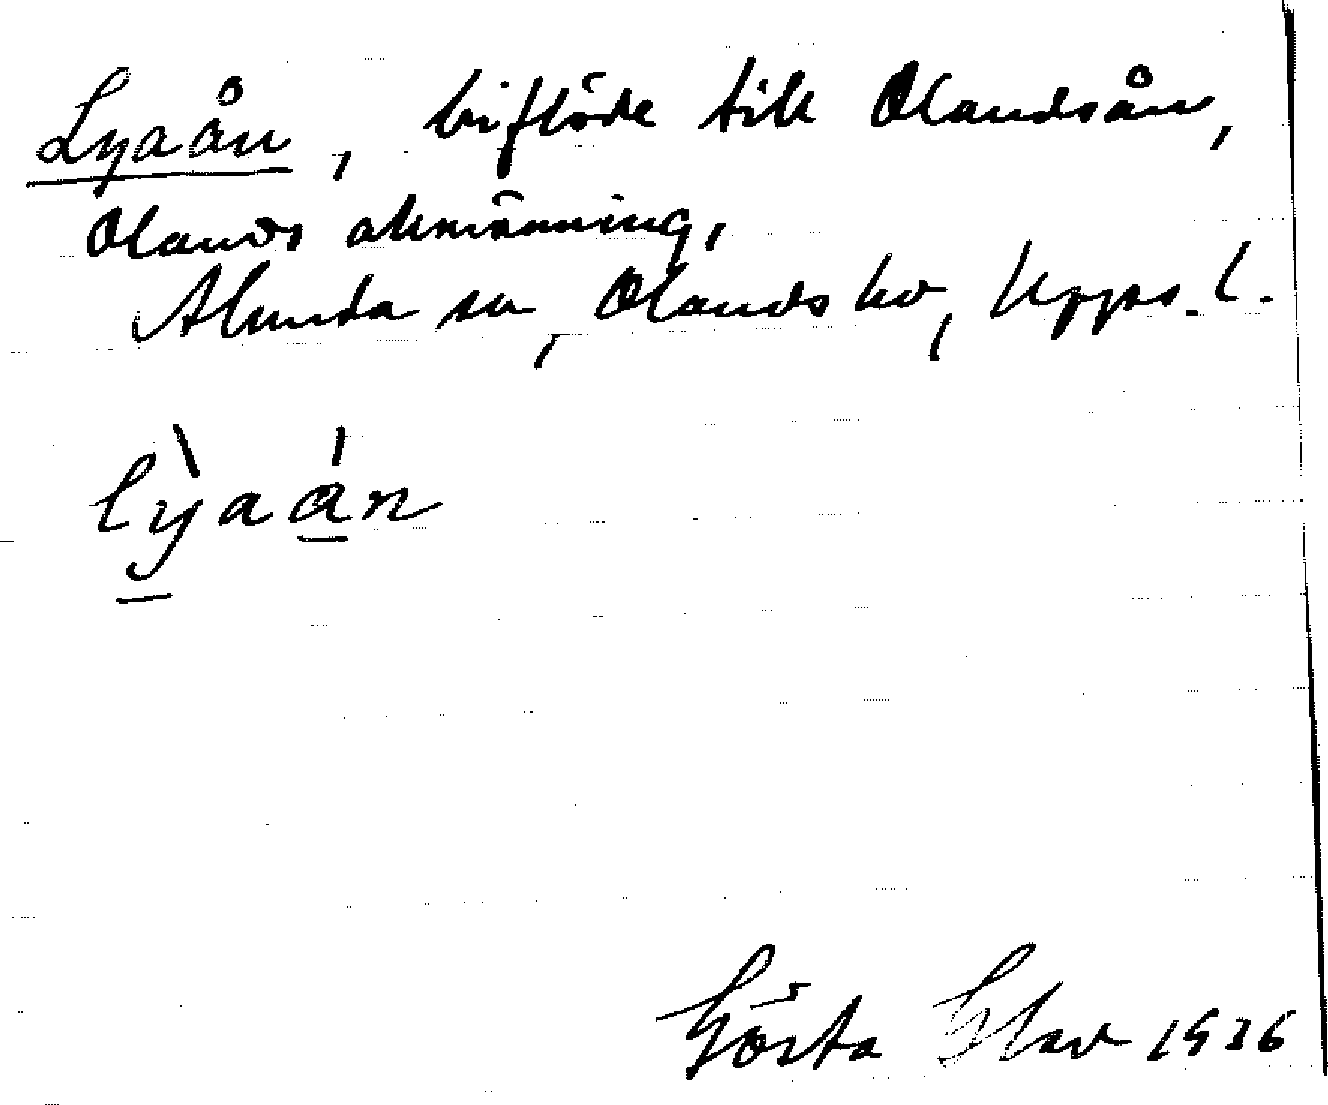 Lyaån, biflöde till Olandsån,
Olands allmänning,
Alunda sn, Olands hd, Upps. l.
lỳaán
Gösta Glav 1936